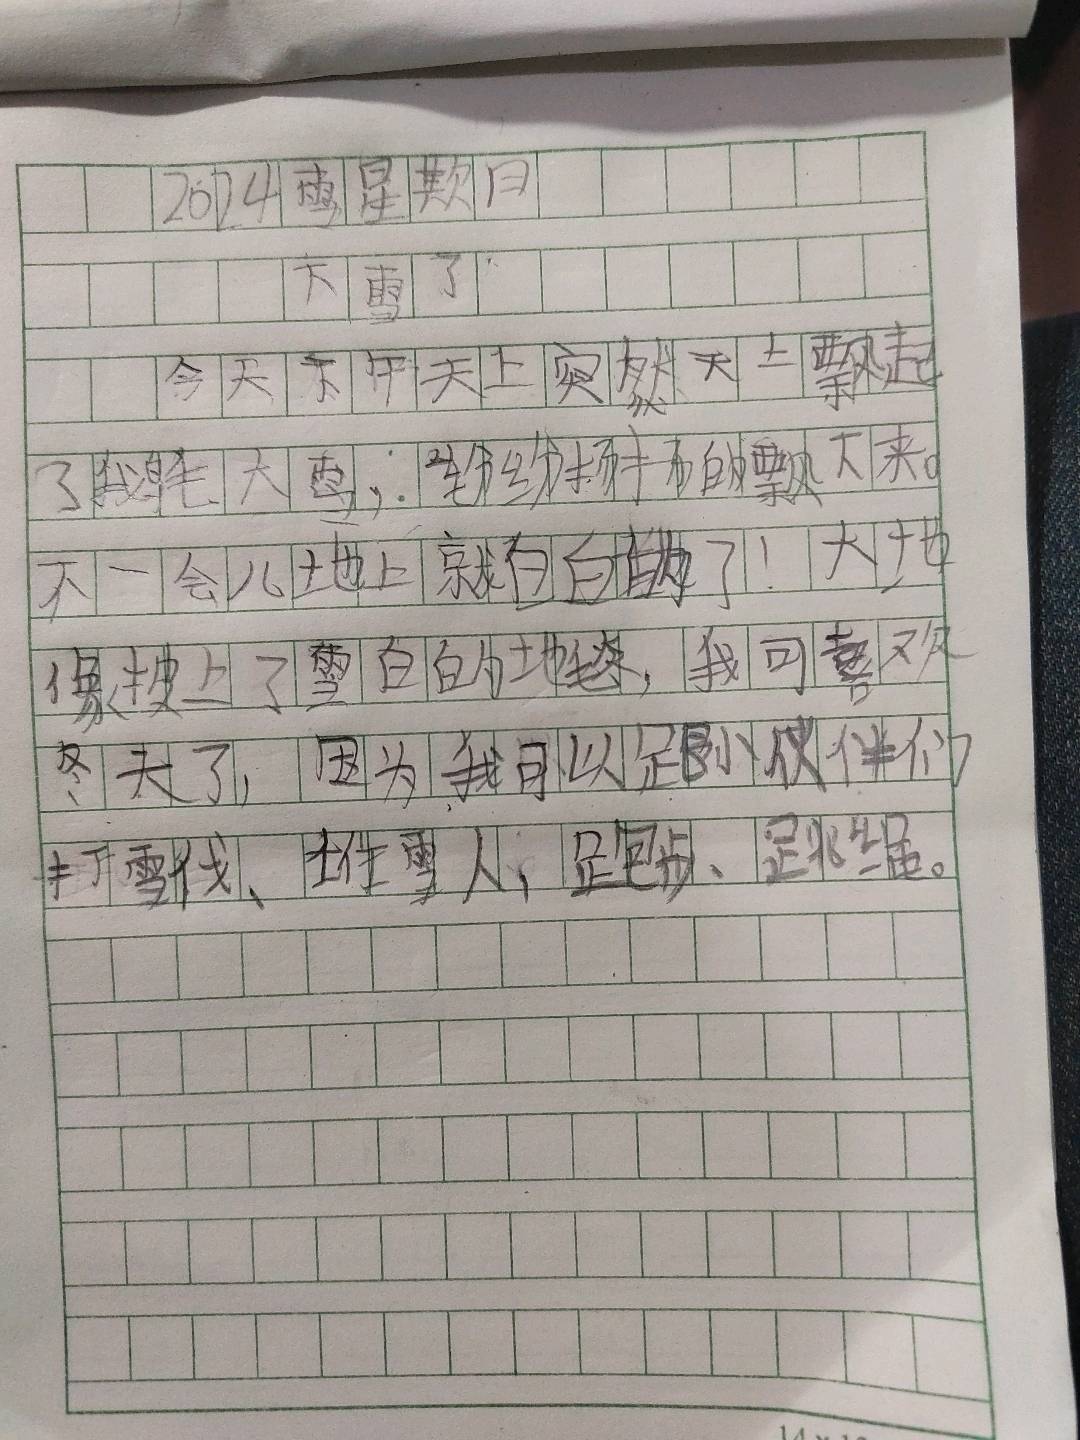 2024 雪 星期日
下雪了
今天下午天上突然天上飘起
了鹅毛大雪,纷纷扬扬的飘下来。
不一会儿地上就白白的了!大地
像披上了雪白的地毯,我可喜欢
冬天了,因为我可以跟小伙伴们
打雪仗、堆雪人,跑步、跳绳。